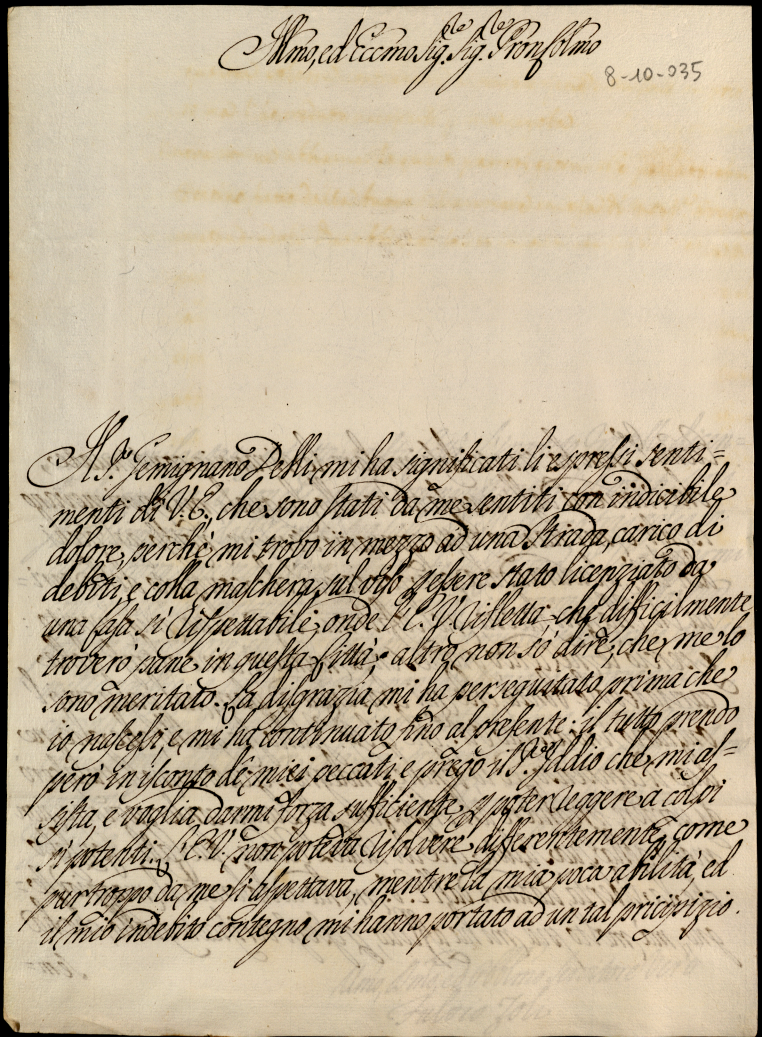 Illmo, ed Eccmo Sig.re Sig.re Pron Colmo
8-10-035
Il S.r Gemignano Delli mi ha significati li espressi senti=
menti di V.E., che sono stati da me sentiti con indicibile
dolore, perchè mi trovo in mezzo ad una strada, carico di
debiti, e colla maschera sul volto p essere stato licenziato da
una Casa sì rispettabile, onde l'E.V. rifletta che difficilmente
troverò pane in questa Città; altro non sò dire, che me lo
sono meritato. La disgrazia mi ha perseguitato prima che
io nascessi, e mi ha continuato fino al presente: il tutto prendo
però in isconto de miei peccati, e prego il S. Iddio che mi as=
sista, e voglia darmi forza sufficiente p poter leggere a colpi
sì potenti. L'E.V. non poteva risolvere differentemente, come
pur troppo da me si aspettava, mentre la mia poca abilità, ed
il mio indebito contegno mi hanno portato ad un tal pricipizio.